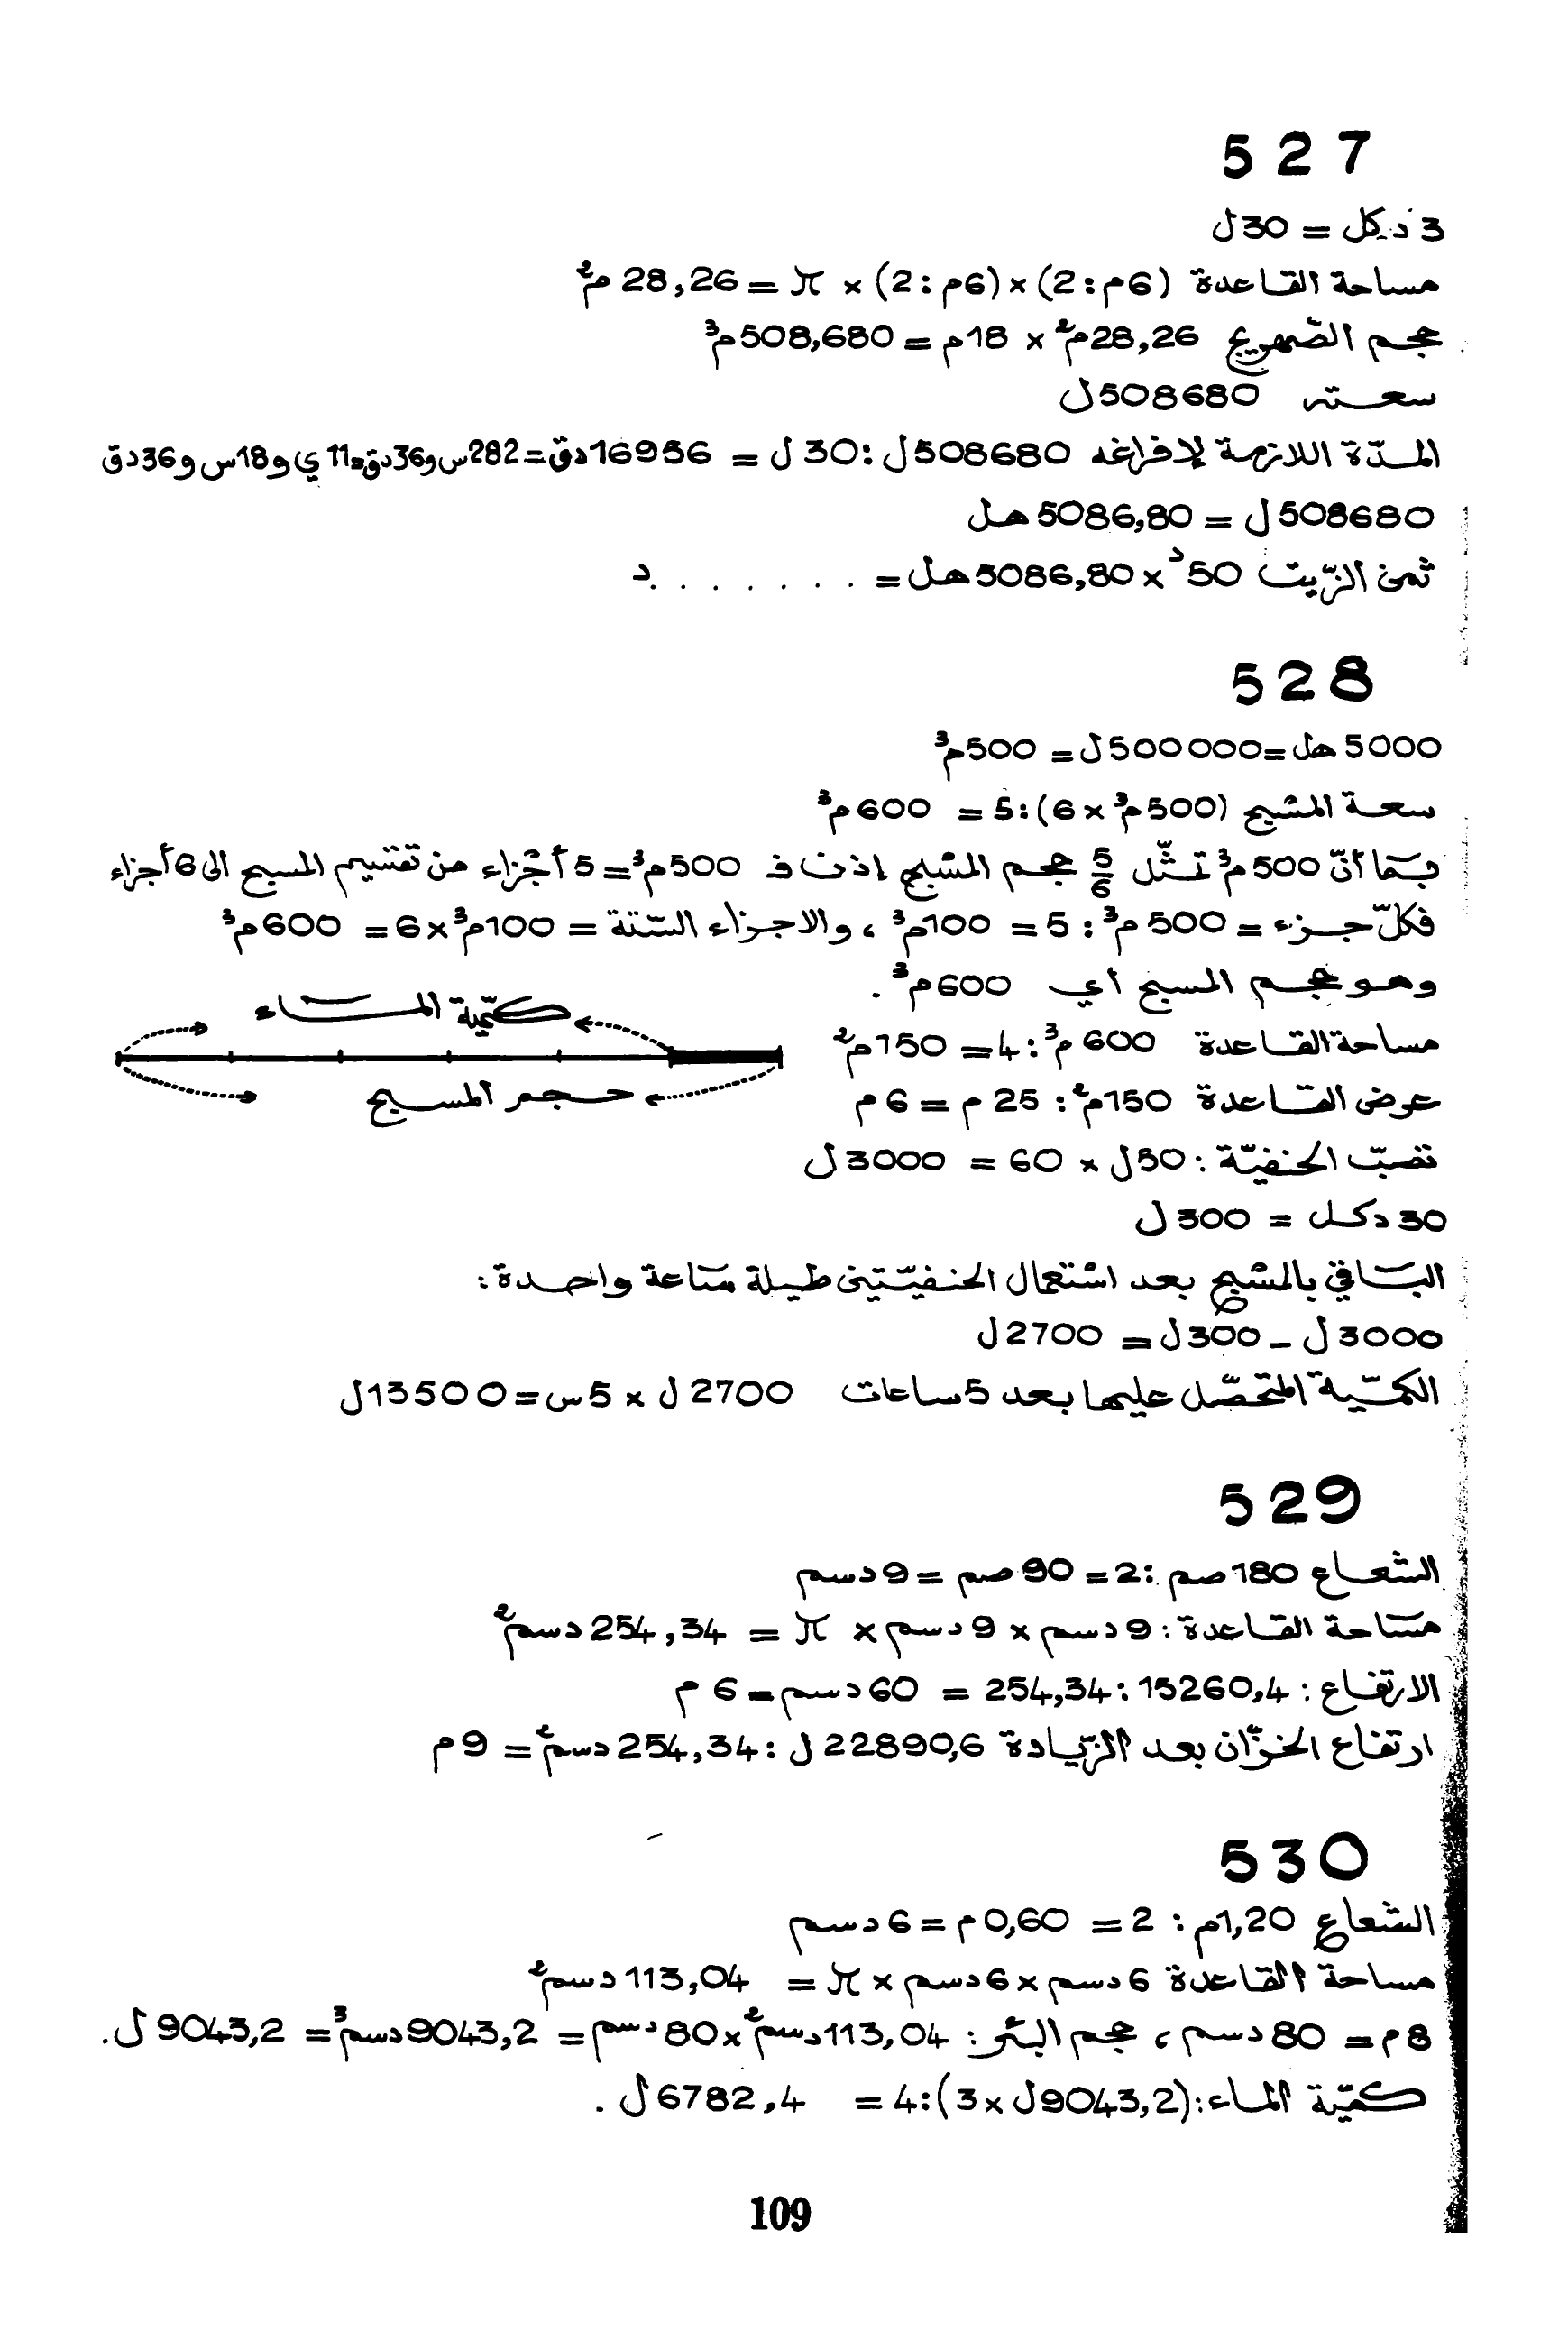 527
3 دكل = 30ل
مساحة القاعدة (6م:2)×(6م:2) × π = 28,26 م²
حجم الصّهريج 28,26م² × 18م = 508,680م³
سعته 508680ل
المدّة اللازمة لإفراغه 508680ل:30ل = 16956دق=282س و36دق=11ي و18س و36دق
508680ل = 5086,80هل
ثمن الزّيت 50د×5086,80هل = . . . . . . . د
528
5000هل=500000ل= 500م³
سعة المسبح (500م³×6):5 = 600م³
فبما أنّ 500م³ تمثّل 5/6 حجم المسبح اذن ف 500م³=5 أجزاء من تقسيم المسبح الى 6 أجزاء
فكلّ جزء = 500م³: 5 = 100م³، والاجزاء الستّة = 100م³×6 = 600م³
وهو حجم المسبح أي 600م³.
كمّية الماء
مساحة القاعدة 600م³:4=150م²
حجم المسبح
عرض القاعدة 150م²: 25م = 6م
تصبّ الحنفيّة: 50ل × 60 = 3000ل
30دكل = 300ل
الباقي بالمسبح بعد استعمال الحنفيّتين طيلة ساعة واحدة:
3000ل - 300ل = 2700ل
الكمّية المتحصّل عليها بعد 5ساعات 2700ل × 5س=13500ل
529
الشعاع 180صم:2= 90صم =9دسم
مساحة القاعدة: 9دسم × 9دسم × π = 254,34دسم²
الارتفاع: 15260,4:254,34 = 60دسم=6م
ارتفاع الخزّان بعد الزّيادة 22890,6ل:254,34دسم²= 9م
530
الشعاع 1,20م: 2= 0,60م=6دسم
مساحة القاعدة 6دسم×6دسم×π = 113,04دسم²
8م= 80دسم، حجم البئر: 113,04دسم²×80دسم= 9043,2دسم³= 9043,2ل.
كمّية الماء:(9043,2ل×3):4= 6782,4ل.
109